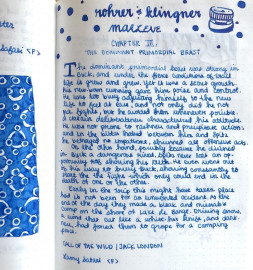 rohrer & klingner
CHAPTER III
THE DOMINANT PRIMORDIAL BEAST
The dominant primordial beast was strong in
Buck, and under the fierce conditions of trail
life it grew and grew. Yet it was a secret growth.
His newborn cunning gave him poise and control.
He was too busy adjusting himself to the new
life to feel at ease, and not only did he not
pick fights, but he avoided them whenever possible.
A certain deliberateness characterized his attitude.
He was not prone to rashness and precipitate action;
and in the bitter hatred between him and Spitz
he betrayed no impatience, shunned all offensive acts.
On the other hand, possibly because he divined
in Buck a dangerous rival, Spitz never lost an op-
portunity of showing his teeth. He even went out
of his way to bully Buck, striving constantly to
start the fight which could only end in the
death of one or the other.
Early in the trip this might have taken place
had it not been for an unwonted accident. At the
end of this day they made a bleak and miserable
camp on the shore of Lake Le Barge. Driving snow,
a wind that cut like a white-hot knife, and dark-
ness, had forced them to grope for a camping
place.
CALL OF THE WILD | JACK LONDON